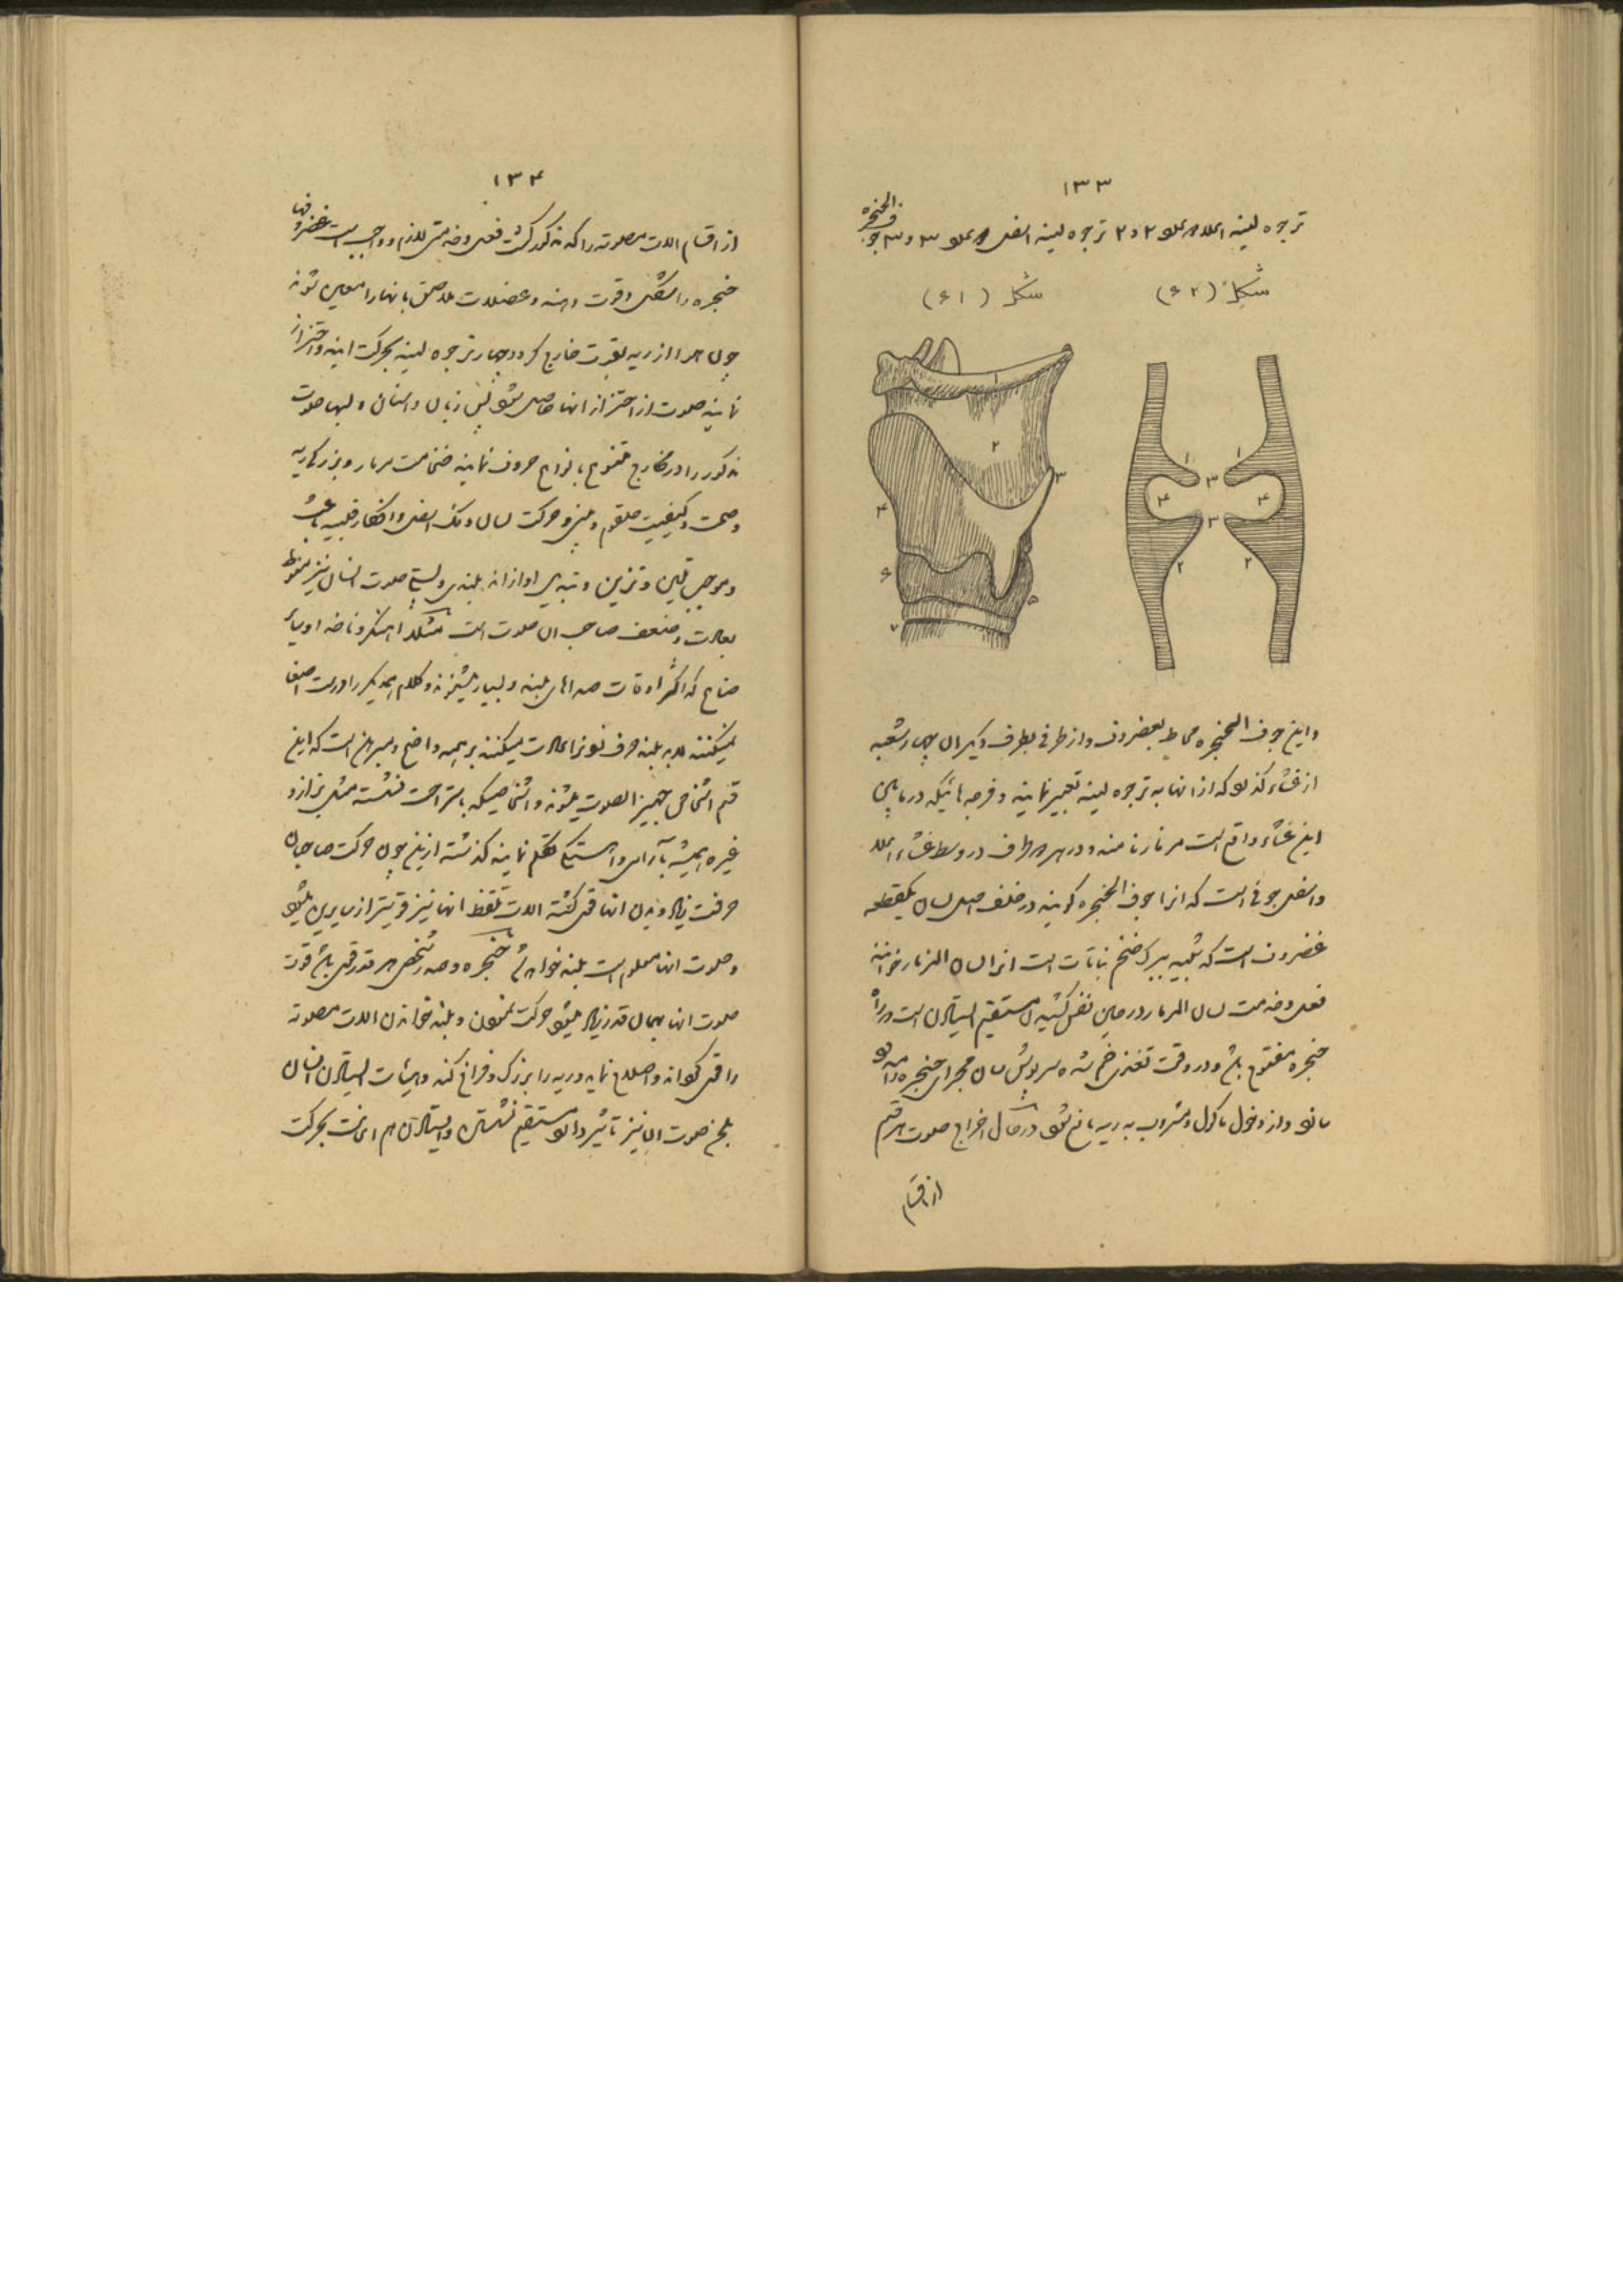 ۱۳۳
ترجوه لینه اعلا هر علو ۲ و ۲ ترجوه لینه اسفل هر علو ۳ و ۳ جوف الحنجره
شکل (۶۲) شکل (۶۱)
۱ ۲ ۳ ۴ ۵ ۶ ۷
۱ ۱ ۳ ۴ ۴ ۳ ۲ ۲
واین جوف الحنجره محاط بغضروف و از طرفی بطرف دیگر ان چهار شعبه
از غشاء که از انها به ترجوه لینه تعبیر نمایند و فرجه هائیکه در مابین
این غشاء واقع است مزمار نامند و در هر طرف در وسط غشاء اعلا
واسفل جوفی است که انرا جوف الحنجره گویند در خلف اصل لسان یکقطعه
غضروف است که شبیه ببرک ضخم نباتات است انرا لسان المزمار خوانند
فعل و خدمت لسان المزمار در حین نفس کشیدن مستقیم ایستادن است و راه
حنجره مفتوح باشد و در وقت تغذی خم شده سرپوش سان مجرای حنجره را
و از دخول ماکول و مشروب به ریه مانع شود در حال اخراج صوت هر قسم
از اقسام
۱۳۴
از اقسام الات مصوته را که مذکور گشت فعل و خدمتی لازم و واجب است غضروفها
حنجره را شکل و قوت دهند و عضلات ملاصق بانها را معین شوند
چون هوا از ریه بقوت خارج گردد چهار ترجوه لینه بحرکت ایند و اهتزاز
نمایند صوت از اهتزاز انها حاصل شود پس زبان و اسنان و لبها صوت
مذکور را در مخارج متنوع بانواع حروف نمایند ضخامت مزمار و بزرگی ریه
وصحت و کیفیت حلقوم و بینی و حرکت لسان وفک اسفل و افکار قلبیه باعث
و موجب تلیین و تزیین و تبدیل اوازاند بلندی و پستی صوت انسان نیز منوط
بعادت و ضعف صاحب ان صوت است مثلا اهنگر و ناخدا و سایر
صنایع که اکثر اوقات صداهای بلند و بسیار میشنوند و کلام یکدیگر را درست اصغا
نمیکنند لابد بلند حرف زدن را عادت میکنند بر همه واضح و مبرهن است که این
قسم اشخاص جهیر الصوت میشوند و اشخاصیکه باستراحت نشسته مثل بزاز و
غیره همیشه بآرامی و آهستگی تکلم نمایند گذشته ازین چون حرکت صاحبان
حرفت زیاد و بدن انها قوی گشته الات تلفظ انها نیز قویتر از سایرین میشود
وصوت انها معلوم است بلند خواهد شد حنجره و صدر شخص هر قدر قوی باشد قوت
صوت انها بهمان قدر زیاد میشود حرکت نمودن و بلند خواندن الات مصوته
را قوی گرداند و اضلاع نماید و ریه را بزرگ و فراخ کند و هیئات ایستادن انسان
بلحن صوت ان نیز تأثیر دارد مستقیم نشستن و ایستادن هم اعانت بحرکت